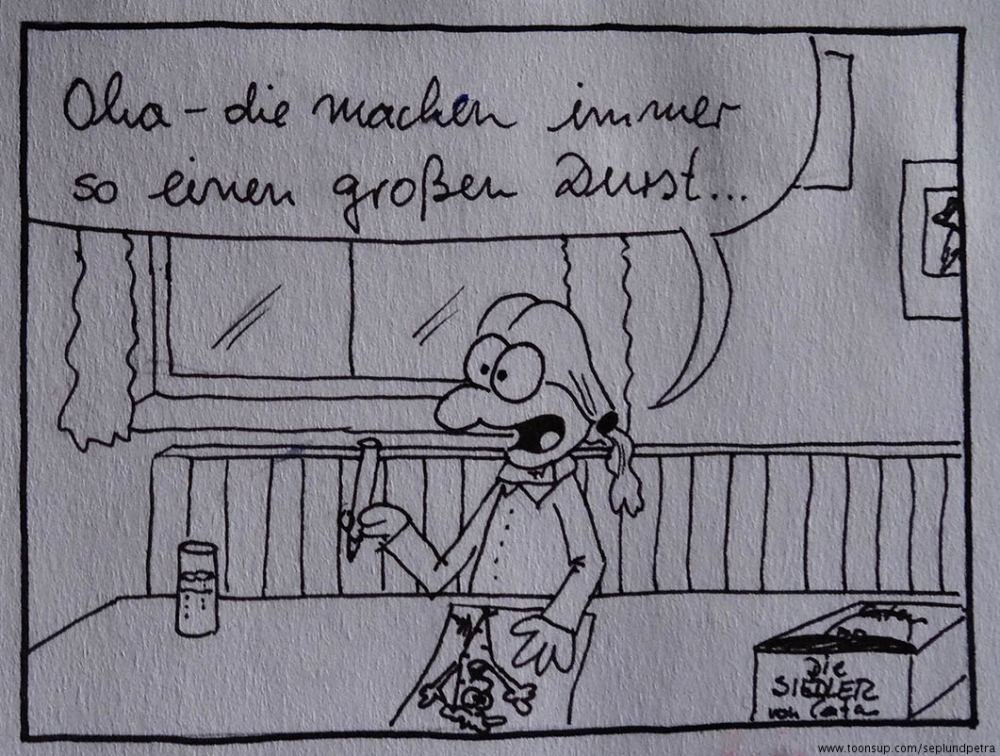 Oha - die machen immer
so einen großen Durst...
Die
SIEDLER
von Catan
www.toonsup.com/seplundpetra